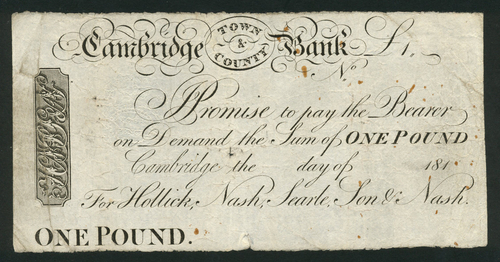 Cambridge TOWN & COUNTY Bank £1,
No
I Promise to pay the Bearer
on Demand the Sum of ONE POUND
Cambridge the day of 181
For Hollick, Nash, Searle, Son & Nash.
ONE POUND.